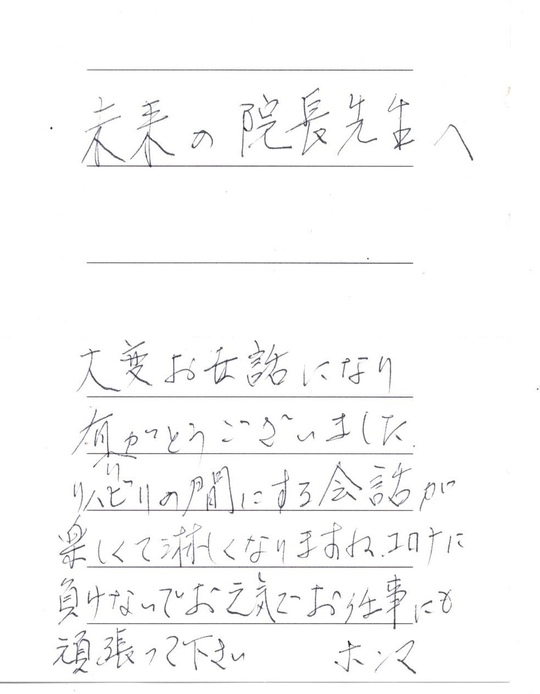 未来の院長先生へ
大変お世話になり
有がとうございました.
リハビリの間にする会話が
楽しくて淋しくなりますね.コロナに
負けないでお元気でお仕事にも
頑張って下さい ホンマ